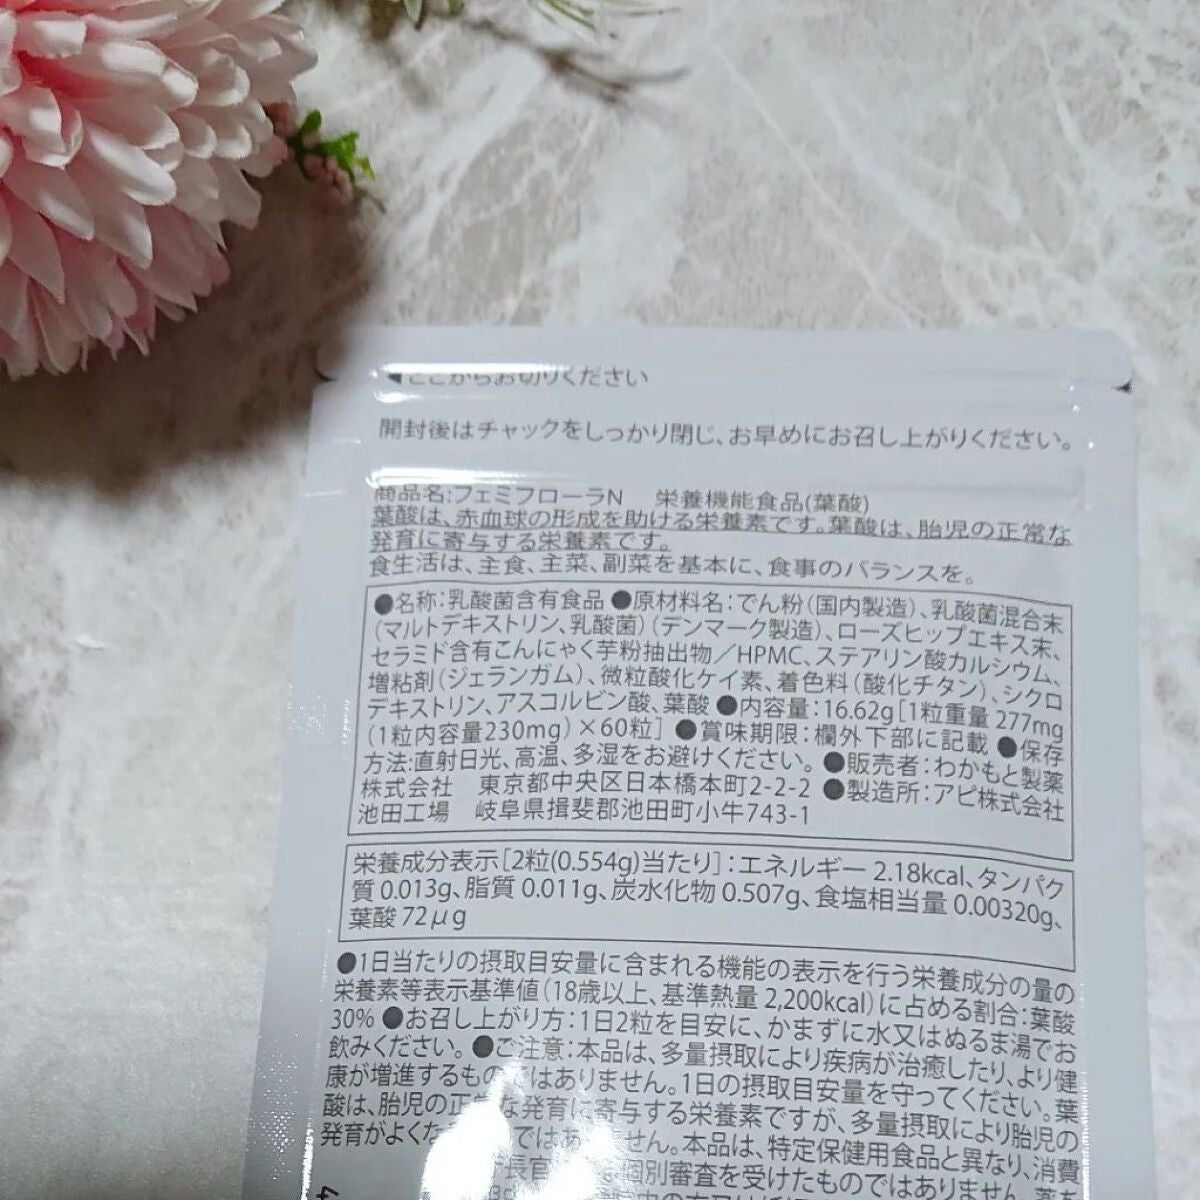 ◀ここからお切りください
開封後はチャックをしっかり閉じ、お早めにお召し上がりください。
商品名:フェミフローラN　栄養機能食品(葉酸)
葉酸は、赤血球の形成を助ける栄養素です。葉酸は、胎児の正常な
発育に寄与する栄養素です。
食生活は、主食、主菜、副菜を基本に、食事のバランスを。
●名称:乳酸菌含有食品 ●原材料名:でん粉(国内製造)、乳酸菌混合末
(マルトデキストリン、乳酸菌)(デンマーク製造)、ローズヒップエキス末、
セラミド含有こんにゃく芋粉抽出物/HPMC、ステアリン酸カルシウム、
増粘剤(ジェランガム)、微粒酸化ケイ素、着色料(酸化チタン)、シクロ
デキストリン、アスコルビン酸、葉酸 ●内容量:16.62g[1粒重量 277mg
(1粒内容量230mg)×60粒] ●賞味期限:欄外下部に記載 ●保存
方法:直射日光、高温、多湿をお避けください。 ●販売者:わかもと製薬
株式会社　東京都中央区日本橋本町2-2-2 ●製造所:アピ株式会社
池田工場　岐阜県揖斐郡池田町小牛743-1
栄養成分表示[2粒(0.554g)当たり]:エネルギー 2.18kcal、タンパク
質 0.013g、脂質 0.011g、炭水化物 0.507g、食塩相当量 0.00320g、
葉酸 72μg
●1日当たりの摂取目安量に含まれる機能の表示を行う栄養成分の量の
栄養素等表示基準値(18歳以上、基準熱量 2,200kcal)に占める割合:葉酸
30% ●お召し上がり方:1日2粒を目安に、かまずに水又はぬるま湯でお
飲みください。 ●ご注意:本品は、多量摂取により疾病が治癒したり、より健
康が増進するものではありません。1日の摂取目安量を守ってください。葉
酸は、胎児の正常な発育に寄与する栄養素ですが、多量摂取により胎児の
発育がよくなるものではありません。本品は、特定保健用食品と異なり、消費
庁長官 個別審査を受けたものではありません。